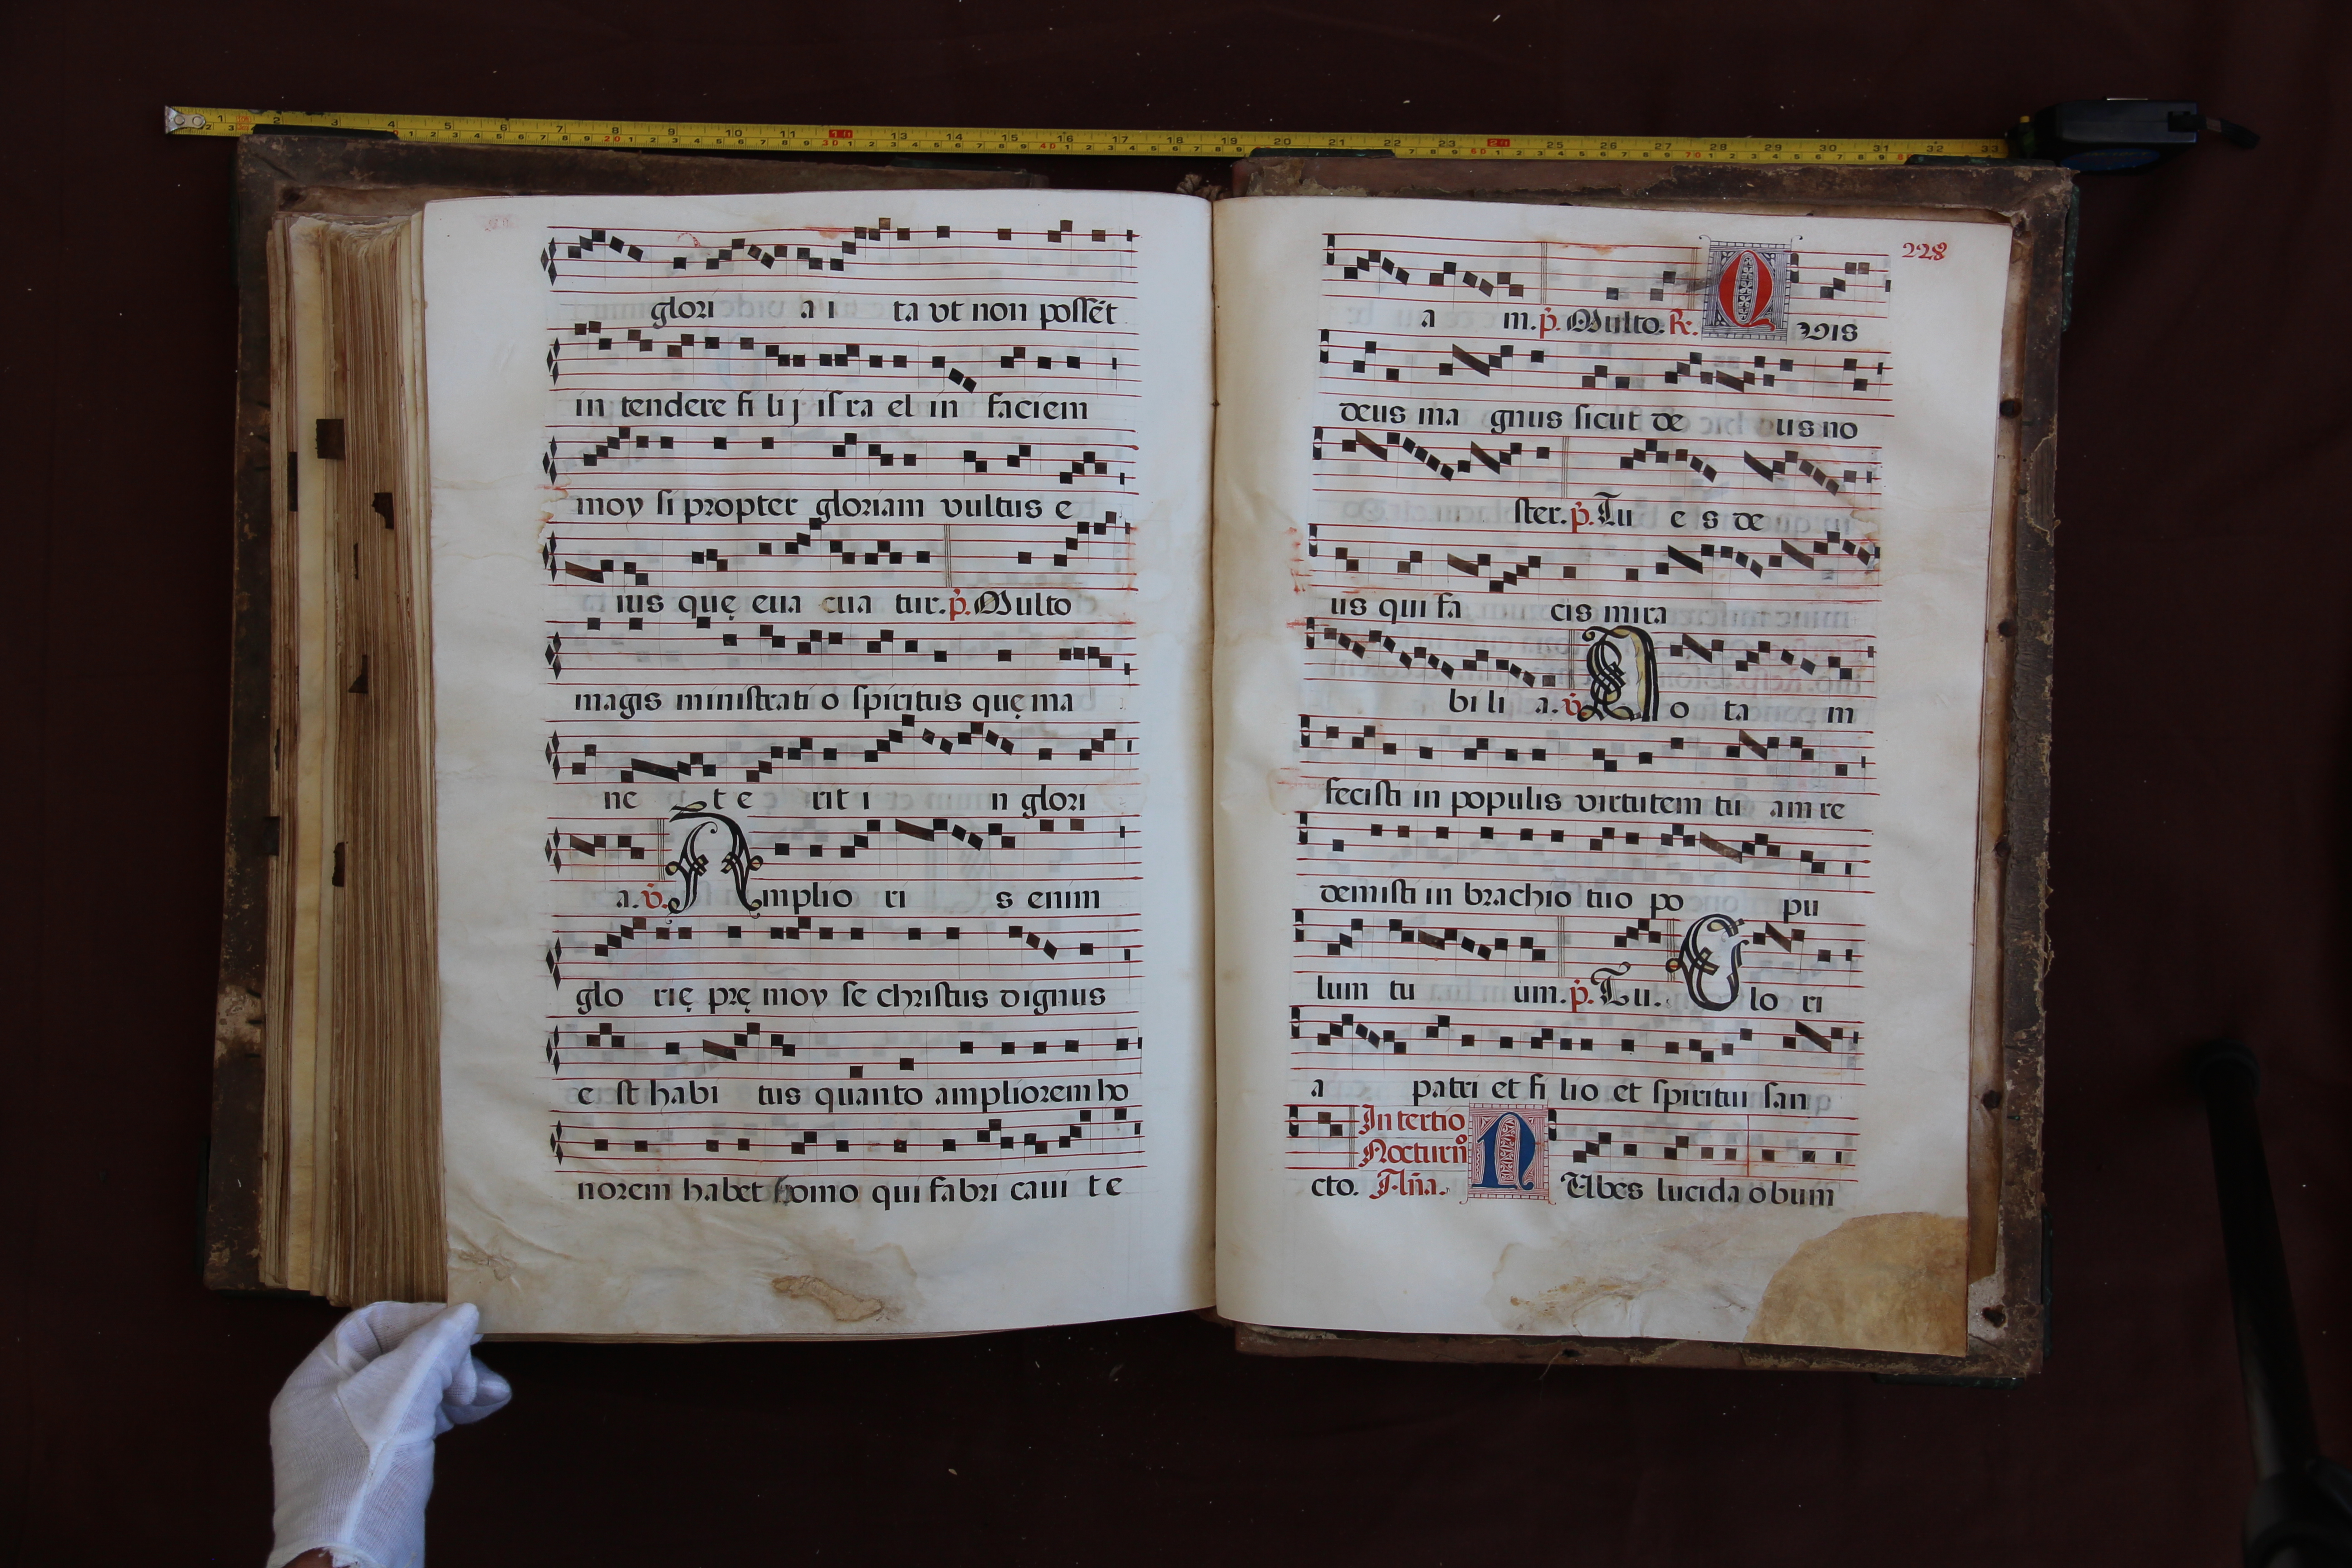 glori a i ta vt non possẽt
in tendere fi lij isra el in faciem
moy si propter gloriam vultus e
ius quę eua cua tur. p̃. Multo
magis ministrati o spiritus quę ma
ne t e rit i n glori
a. ṽ. Amplio ri s enim
glo rię prę moy se christus dignus
e st habi tus quanto ampliorem ho
norem habet homo qui fabri caui te
228
a m. p̃. Multo. R̃. Q vis
deus ma gnus sicut de us no
ster. p̃. Tu e s de
us qui fa cis mira
bi li a. ṽ. N o ta m
fecisti in populis virtutem tu am re
demisti in brachio tuo po pu
lum tu um. p̃. Tu. G lo ri
a patri et fi lio et spiritui san
In tertio
Nocturnº
cto. Aña. N Vbes lucida obum